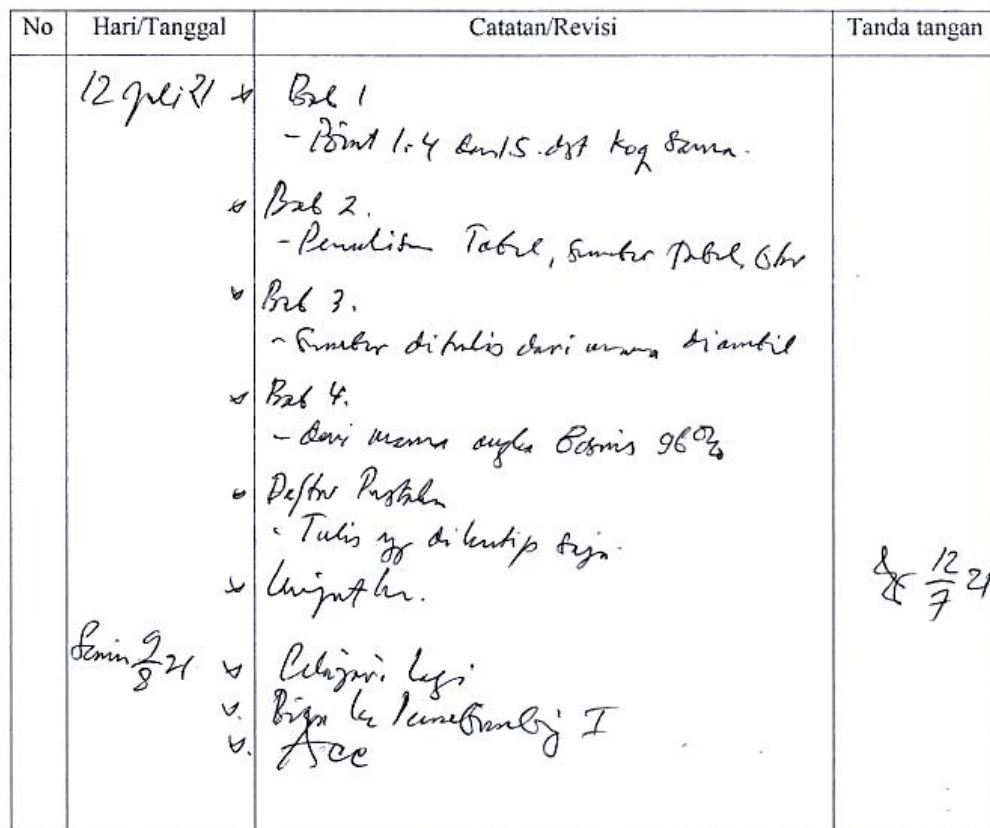 No Hari/Tanggal Catatan/Revisi Tanda tangan
12 Juli 21 Bab 1
- Point 1.4 dan 1.5. dst koq sama.
Bab 2.
- Penulisan Tabel, Sumber Tabel, Gbr
Bab 3.
- Sumber ditulis dari mana diambil
Bab 4.
- dari mana angka 96%
Daftar Pustaka
- Tulis yg dikutip saja.
Lanjutkan.
12/7 21
Senin 9/8 21 lagi
Bisa ke Pembimbing I
Acc